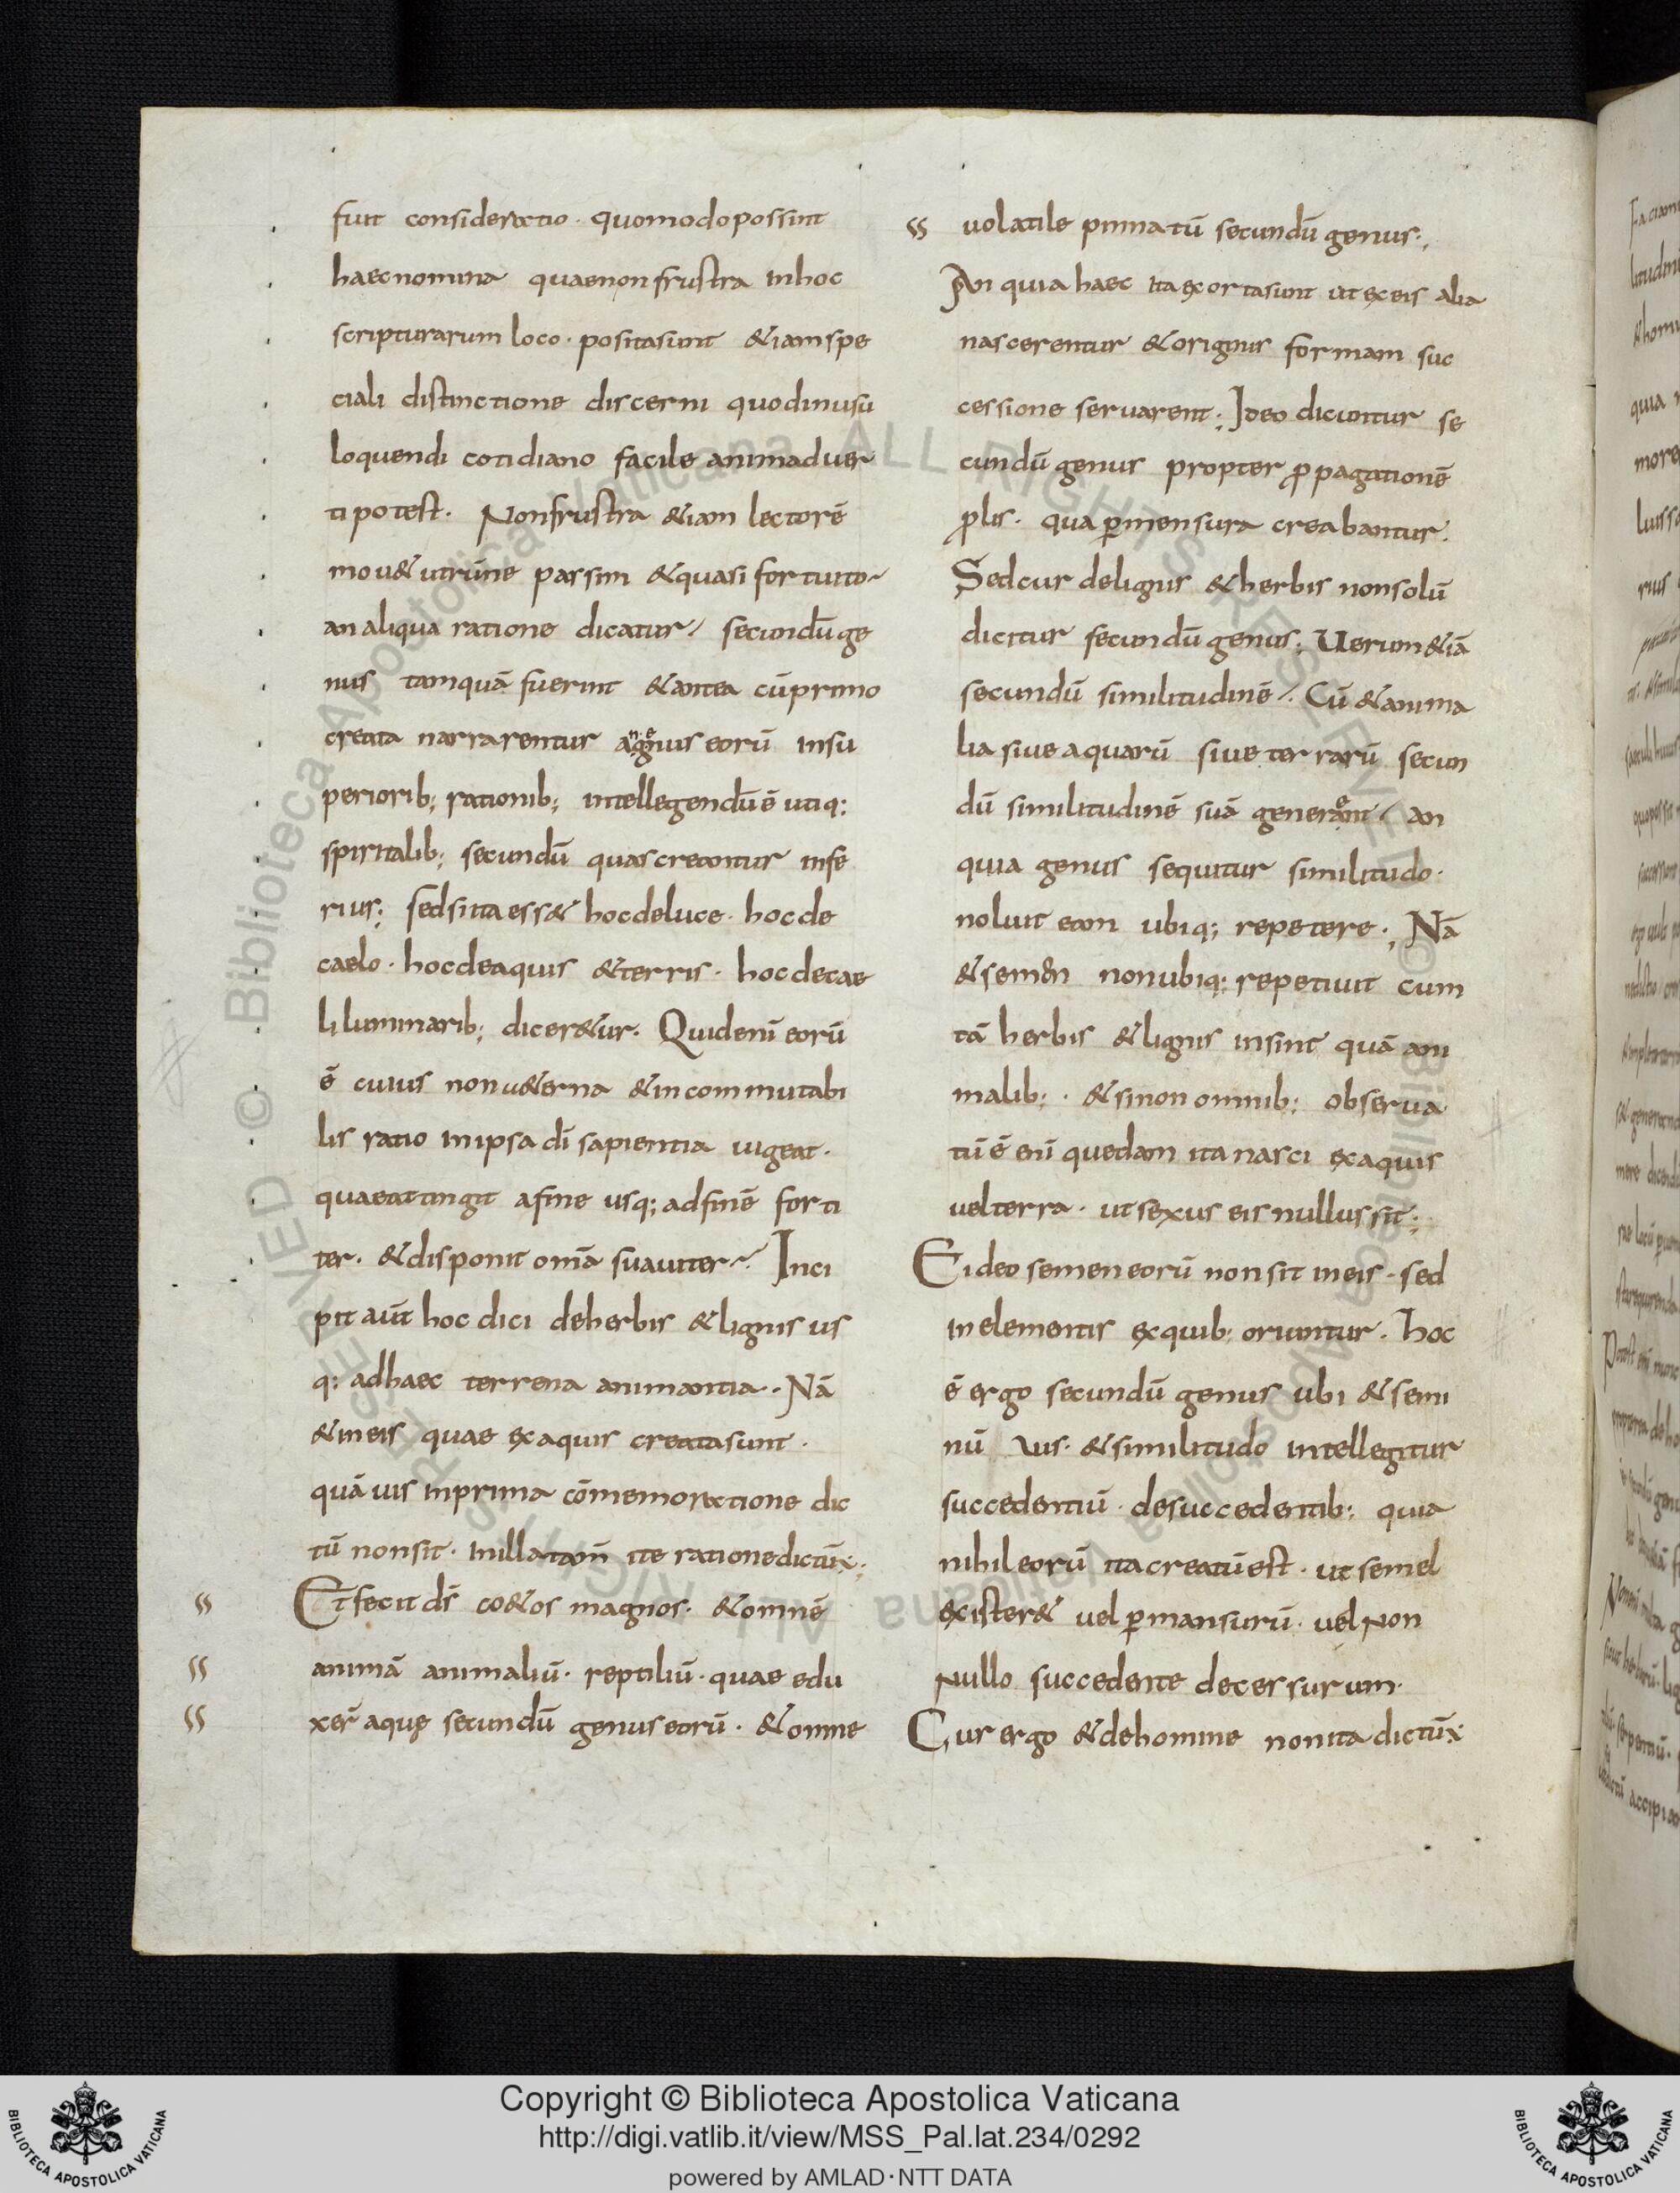 fuit consideratio · quomodo possint
haec nomina quae non frustra in hoc
scripturarum loco · posita sunt &iam spe
ciali distinctione discerni quod in usu
loquendi cotidiano facile animaduer
ti potest · Non frustra &iam lectorē
mou& utrūne passim & quasi fortuito
an aliqua ratione dicatur / secundū ge
nus tamquā fuerint & antea cū primo
creata narrarentur an genus eorū in su
periorib; rationib; intellegendū ē utiq:
spiritalib; secundū quas creantur infe
rius; sed si ita ess& hoc de luce · hoc de
caelo · hoc de aquis & terris · hoc de cae
li luminarib; dicer&ur · Quid enī eorū
ē cuius non u&erna & incommutabi
lis ratio in ipsa dī sapientia uigeat ·
quae attingit a fine usq; ad finē forti
ter · & disponit omā suauiter / Inci
pit aūt hoc dici de herbis & lignis us
q: ad haec terrena animantia · Nā
& in eis quae ex aquis creata sunt ·
quā uis in prima cōmemoratione dic
tū non sit · in illa tam̄ ite ratione dictū;
ss Et fecit ds̄ co&os magnos · & omnē
ss animā animaliū · reptiliū · quae edu
ss xer̄ aquę secundū genus eorū · & omne
ss uolatile pinnatū secundū genus ·,
An quia haec ita exorta sunt ut ex eis alia
nascerentur & originis formam suc
cessione seruarent; Ideo dicuntur se
cundū genus propter ꝓpagationē
ꝓlis · qua ꝑmensura creabantur ·
Sed cur de lignis & herbis non solū
dicitur secundū genus; Uerum &iā
secundū similitudinē / Cū & anima
lia siue aquarū siue terrarū secun
dū similitudinē suā generent / an
quia genus sequitur similitudo ·
noluit eam ubiq; repetere ·, Nā
& semen non ubiq: repetiuit cum
tā herbis & lignis insint quā ani
malib: · & si non omnib: obserua
tū ē enī quedam ita nasci ex aquis
uel terra · ut sexus eis nullus sit;
Et ideo semen eorū non sit in eis · sed
in elementis ex quib: oriuntur · hoc
ē ergo secundū genus ubi & semi
nū uis · & similitudo intellegitur
succedentiū · de succedentib: quia
nihil eorū ita creatū est · ut semel
exister& uel ꝑmansurū · uel non
nullo succedente decessurum ·
Cur ergo & de homine non ita dictū;
Copyright © Biblioteca Apostolica Vaticana
http://digi.vatlib.it/view/MSS_Pal.lat.234/0292
powered by AMLAD·NTT DATA
BIBLIOTECA APOSTOLICA VATICANA
BIBLIOTECA APOSTOLICA VATICANA